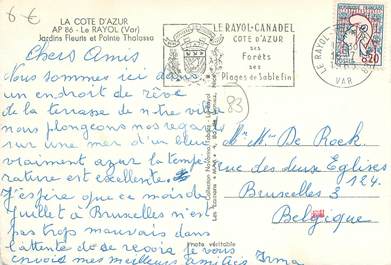 6 €
LA COTE D'AZUR
AP 86 - Le RAYOL (Var)
Jardins Fleuris et Pointe Thalassa
LE RAYOL-CANADEL
COTE D'AZUR
ses
Forêts
ses
Plages de Sable fin
LE RAYOL
VAR
0,20
83
Chers Amis
Nous sommes ici dans
un endroit de rêve
de la terrasse de notre villa
nous plongeons nos regards
sur une mer d'un bleu
vraiment azur la tempe
rature est excellente.
J'espère que ce mois de
Juillet à Bruxelles n'est
pas trop mauvais dans
l'attente de se revoir je vous
envois mes meilleurs amitiés Irma
Mr Mme De Rock
rue des deux Eglises
124.
Bruxelles 3
Belgique
Photo véritable